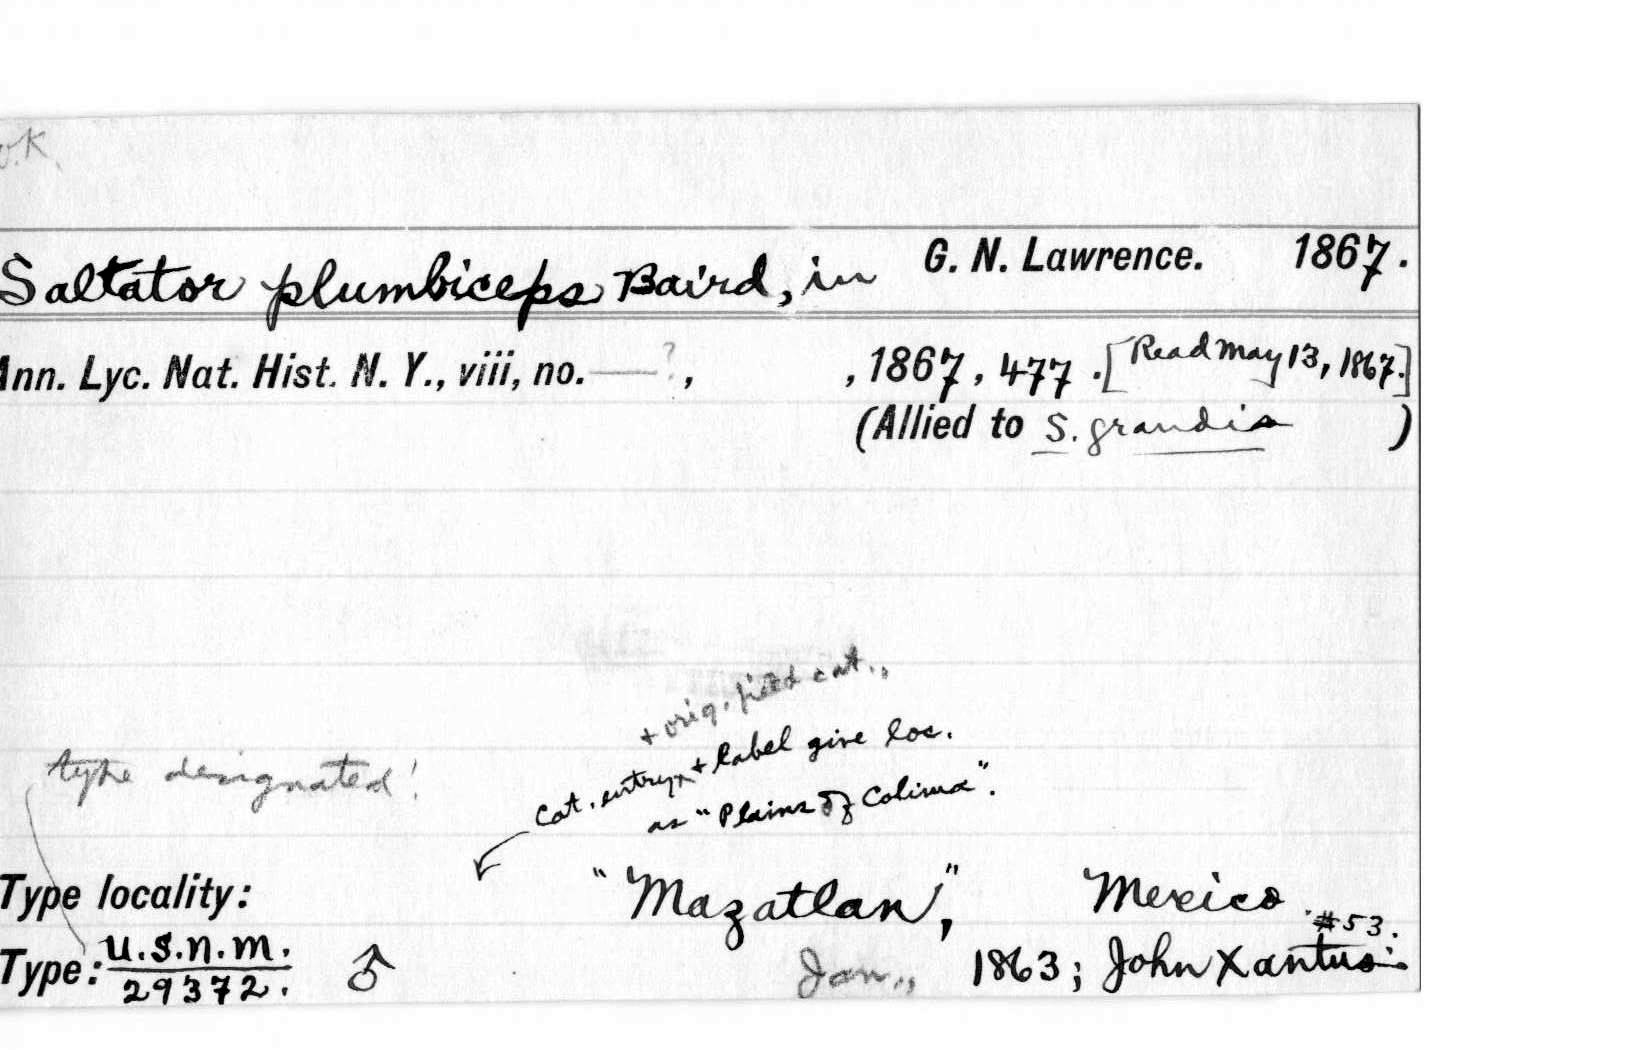 O.K.
Saltator plumbiceps Baird, in G. N. Lawrence. 1867.
Ann. Lyc. Nat. Hist. N. Y., viii, no. —?, , 1867, 477. [Read May 13, 1867.]
(Allied to S. grandis )
+ orig. field cat.,
type designated!
Cat. entry + label give loc.
as "Plains of Colima".
Type locality: "Mazatlan", Mexico.
#53.
Type: U.S.N.M. 29372. ♂ Jan., 1863; John Xantus.